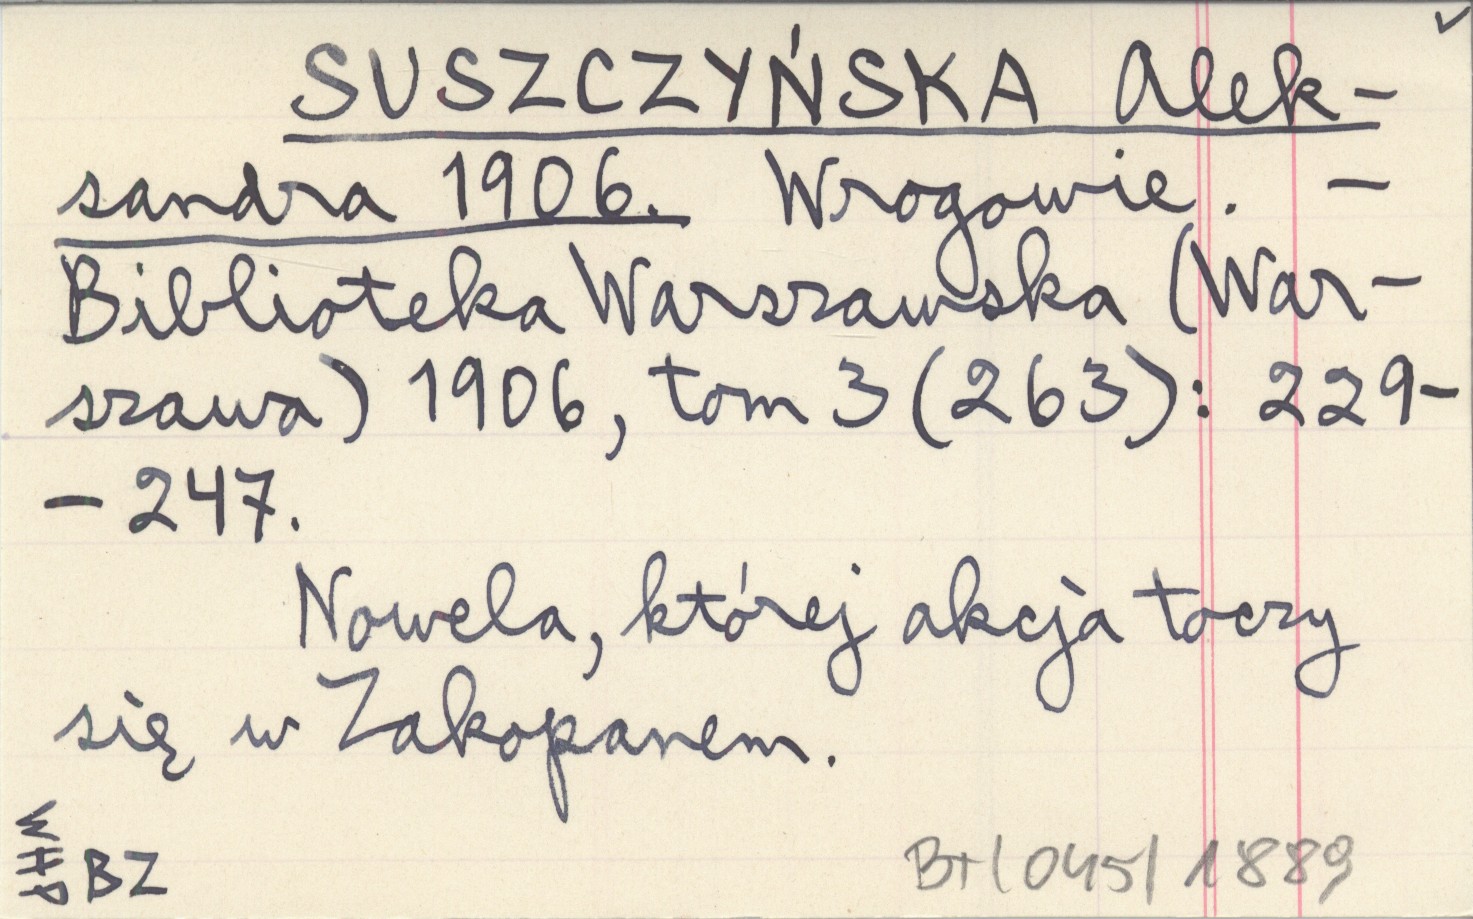 SUSZCZYŃSKA Alek-
sandra 1906. Wrogowie. –
Biblioteka Warszawska (War-
szawa) 1906, tom 3 (263): 229-
– 247.
Nowela, której akcja toczy
się w Zakopanem.
WHP
BZ
BT/045/1889